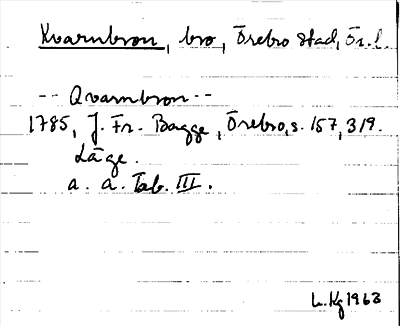 Kvarnbron, bro, Örebro stad, Ör. l.
-- Qvarnbron --
1785, J. Fr. Bagge, Örebro, s. 157, 319.
Läge.
a. a. Tab. III.
L. Kg 1963